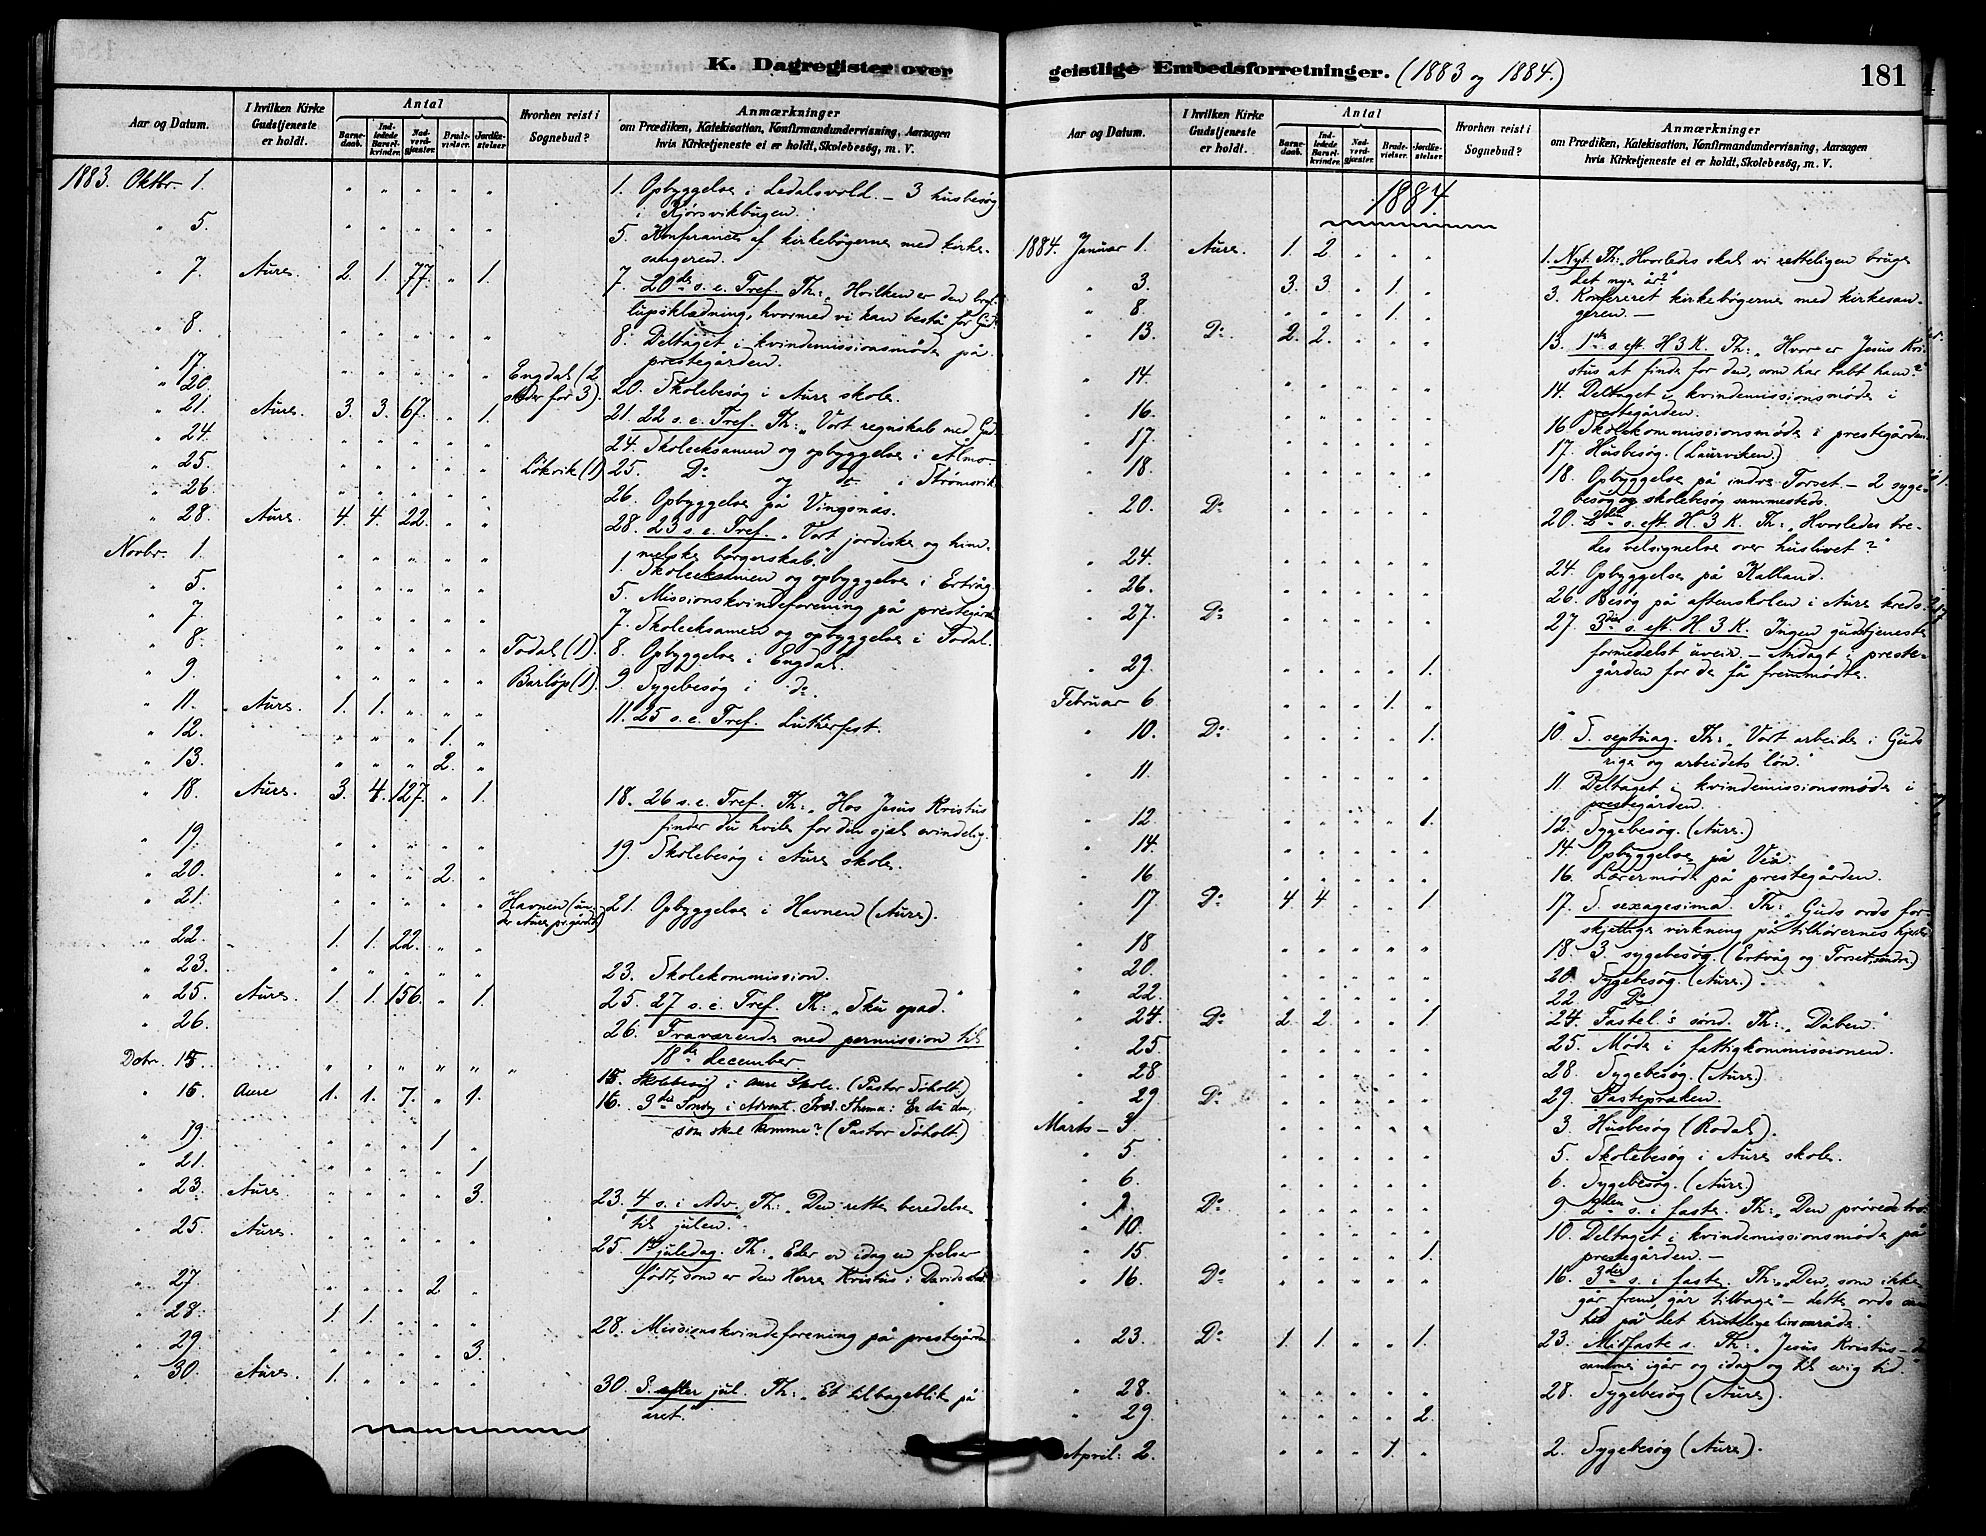 K. Dagregister over
Aar og Datum.
I hvilken Kirke Gudstjeneste er holdt.
Antal
Barnedaab.
Indledede Barselkvinder.
Nadverdgjæster.
Brudevielser.
Jordfæstelser.
Hvorhen reist i Sognebud?
Anmærkninger
om Prædiken, Katekisation, Konfirmandundervisning, Aarsagen
hvis Kirketjeneste ei er holdt, Skolebesøg, m. V.
1883. Oktbr. 1. " " " " " 1. Opbyggelse i Ledalsvold. – 3 husbesøg
i Kjørsvikbugen.
" 5. " " " " " 5. Konferanse af kirkebøgerne med kirke-
sangeren.
" 7. Aure. 2. 1. 77. " 1. 7. 20de s. e. Tref. Th: "Hvilken er den bryl-
lupsklædning, hvormed vi kan bestå for Gud
" 8. " " " " " 8. Deltaget i kvindemissionsmøde på
prestegården.
" 17. " " " " " Engdal (2
" 20. steder for 3). 20. Skolebesøg i Aure skole.
" 21. Aure. 3. 3. 67. " 1. 21. 22 s. e. Tref. Th: "Vort regnskab med Gud
" 24. " " " " " 24. Skoleeksamen og opbyggelse i Almo.
" 25. " " " " " Løkvik (1) 25. Do og do i Strømsvik
" 26. " " " " " 26. Opbyggelse på Vingsnæs.
" 28. Aure. 4. 4. 22. " " 28. 23 s. e. Tref. "Vort jordiske og him-
melske borgerskab."
Novbr. 1. " " " " " 1. Skoleeksamen og opbyggelse i Ertvåg
" 5. " " " " " 5. Missionskvindeforening på prestegård
" 7. " " " " " 7. Skoleeksamen og opbyggelse i Todal.
" 8. " " " " " Todal (1). 8. Opbyggelse i Engdal.
" 9. " " " " " Barløp (1). 9. Sygebesøg i do.
" 11. Aure. 1. 1. " " " 11. 25 s. e. Tref. Lutherfest.
" 12. " " " 1. "
" 13. " " " 2. "
" 18. Aure. 3. 4. 127. " 1. 18. 26 s. e. Tref. Th: "Hos Jesus Kristus
finder du hvile for din sjæl evindelig.
" 19. " " " " " 19. Skolebesøg i Aure skole.
" 20. " " " 2. "
" 21. " " " " " Havnen (un-
der Aure pr.gård) 21. Opbyggelse i Havnen (Aure).
" 22. " 1. 1. 22. " "
" 23. " " " " " 23. Skolekommission.
" 25. Aure. 1. 1. 156. " 1. 25. 27 s. e. Tref. Th: "Sku opad."
" 26. 26. Fraværende med permission til
18de december.
Dcbr. 15. " " " " " " 15. Skolebesøg i Aure Skole. (Pastor Søholt)
" 16. Aure 1. 1. 7. " 1. 16. 3de Sondg i Advent. Præd. Thema: Er du den,
som skal komme? (Pastor Søholt)
" 19. " " " 1 "
" 21. " " " " 1
" 23. Aure. " " " " 3. 23. 4 s. i Adv. Th: "Den rette beredelse
til julen".
" 25. Aure. " " " " " 25. 1ste juledag. Th: "Eder er idag en frelser
født, som er den Herre Kristus i Davids stad
" 27. " " " 2 "
" 28. 1. 1. " " " 28. Missionskvindeforening på prestegården
" 29. " " " " 3.
" 30. Aure. 1. " " " " 30. S. efter jul. Th: "Et tilbageblik på
året."
geistlige Embedsforretninger. (1883 og 1884.)
181
Aar og Datum.
I hvilken Kirke Gudstjeneste er holdt.
Antal
Barnedaab.
Indledede Barselkvinder.
Nadverdgjæster.
Brudevielser.
Jordfæstelser.
Hvorhen reist i Sognebud?
Anmærkninger
om Prædiken, Katekisation, Konfirmandundervisning, Aarsagen
hvis Kirketjeneste ei er holdt, Skolebesøg, m. V.
1884.
1884. Januar 1. Aure. 1. 2. " " " 1. Nyt. Th: "Hvorledes skal vi retteligen bruge
det nye år?"
" 3. 3. 3. " 1. " 3. Konfereret kirkebøgerne med kirkesan-
geren. –
" 8. " " " 1. "
" 13. Do 2. 2. " " " 13. 1ste s. eft. H 3 K. Th: "Hvor er Jesus Kri-
stus at finde for den, som har tabt ham?
" 14. " " " " " 14. Deltaget i kvindemissionsmøde i
prestegården.
" 16. " " " " " 16. Skolekommissionsmøde i prestegården.
" 17. " " " " " 17. Husbesøg. (Laurviken.)
" 18. " " " " " 18. Opbyggelse på indre Torset. – 2 syge-
besøg og skolebesøg sammesteds.
" 20. Do " " " " " 20. 2den s. eft. H. 3 K. Th: "Hvorledes bre-
des velsignelse over huslivet?"
" 24. " " " " " 24. Opbyggelse på Kalland.
" 26. " " " " " 26. Besøg på aftenskolen i Aure kreds.
" 27. Do " " " " " 27. 3die s. eft. H. 3 K. Ingen gudstjeneste
formedelst uveir. – Andagt i preste-
gården for de få fremmødte.
" 29. " " " " 1.
Februar 6 " " " 1. "
" 10. Do " " " " 1. 10. S. septuag. Th: "Vort arbeide i Guds
rige og arbeidets løn."
" 11. " " " " " 11 Deltaget i kvindemissionsmøde i
prestegården.
" 12 " " " " 1. 12. Sygebesøg. (Aure.)
" 14. " " " " " 14. Opbyggelse på Vea.
" 16 " " " " " 16. Lærermøde på prestegården.
" 17 Do 4 4 " " 1 17. S. sexagesima. Th: "Guds ords for-
skjellige virkning på tilhørernes hjerte
" 18 " " " " " 18. 3 sygebesøg. (Ertvåg og Torset, søndre.)
" 20. " " " " " 20 Sygebesøg. (Aure.)
" 22. " " " " " 22 Do
" 24. Do 2. 2. " " 1. 24. Fastel.'s sønd. Th: "Dåben."
" 25. " " " " " 25. Møde i fattigkommissionen.
" 28. " " " " " 28 Sygebesøg. (Aure)
" 29 Do " " " " " 29. Fastepræken.
Marts – 3 " " " " " 3. Husbesøg (Rodal).
" 5. " " " " " 5. Skolebesøg i Aure skole.
" 6. " " " " " 6. Sygebesøg. (Aure)
" 9. Do " " " " " 9 2den s. i faste. Th: "Den prøvede tro
" 10. " " " " " 10. Deltaget i kvindemissionsmøde på
prestegården. –
" 15. " " " " 1.
" 16. Do " " " " " 16. 3die s. i faste. Th: "Den, som ikke
går frem, går tilbage" – dette ords sand-
hed på det kristelige livsområde."
" 23. Do 1. 1. " " 1. 23. Midfaste s. Th: "Jesus Kristus – den
samme igår og idag og til evig tid."
" 28. " " " " " 28. Sygebesøg (Aure).
" 29 " " " " 2.
April: 2. " " " 1. " 2. Sygebesøg (Aure).